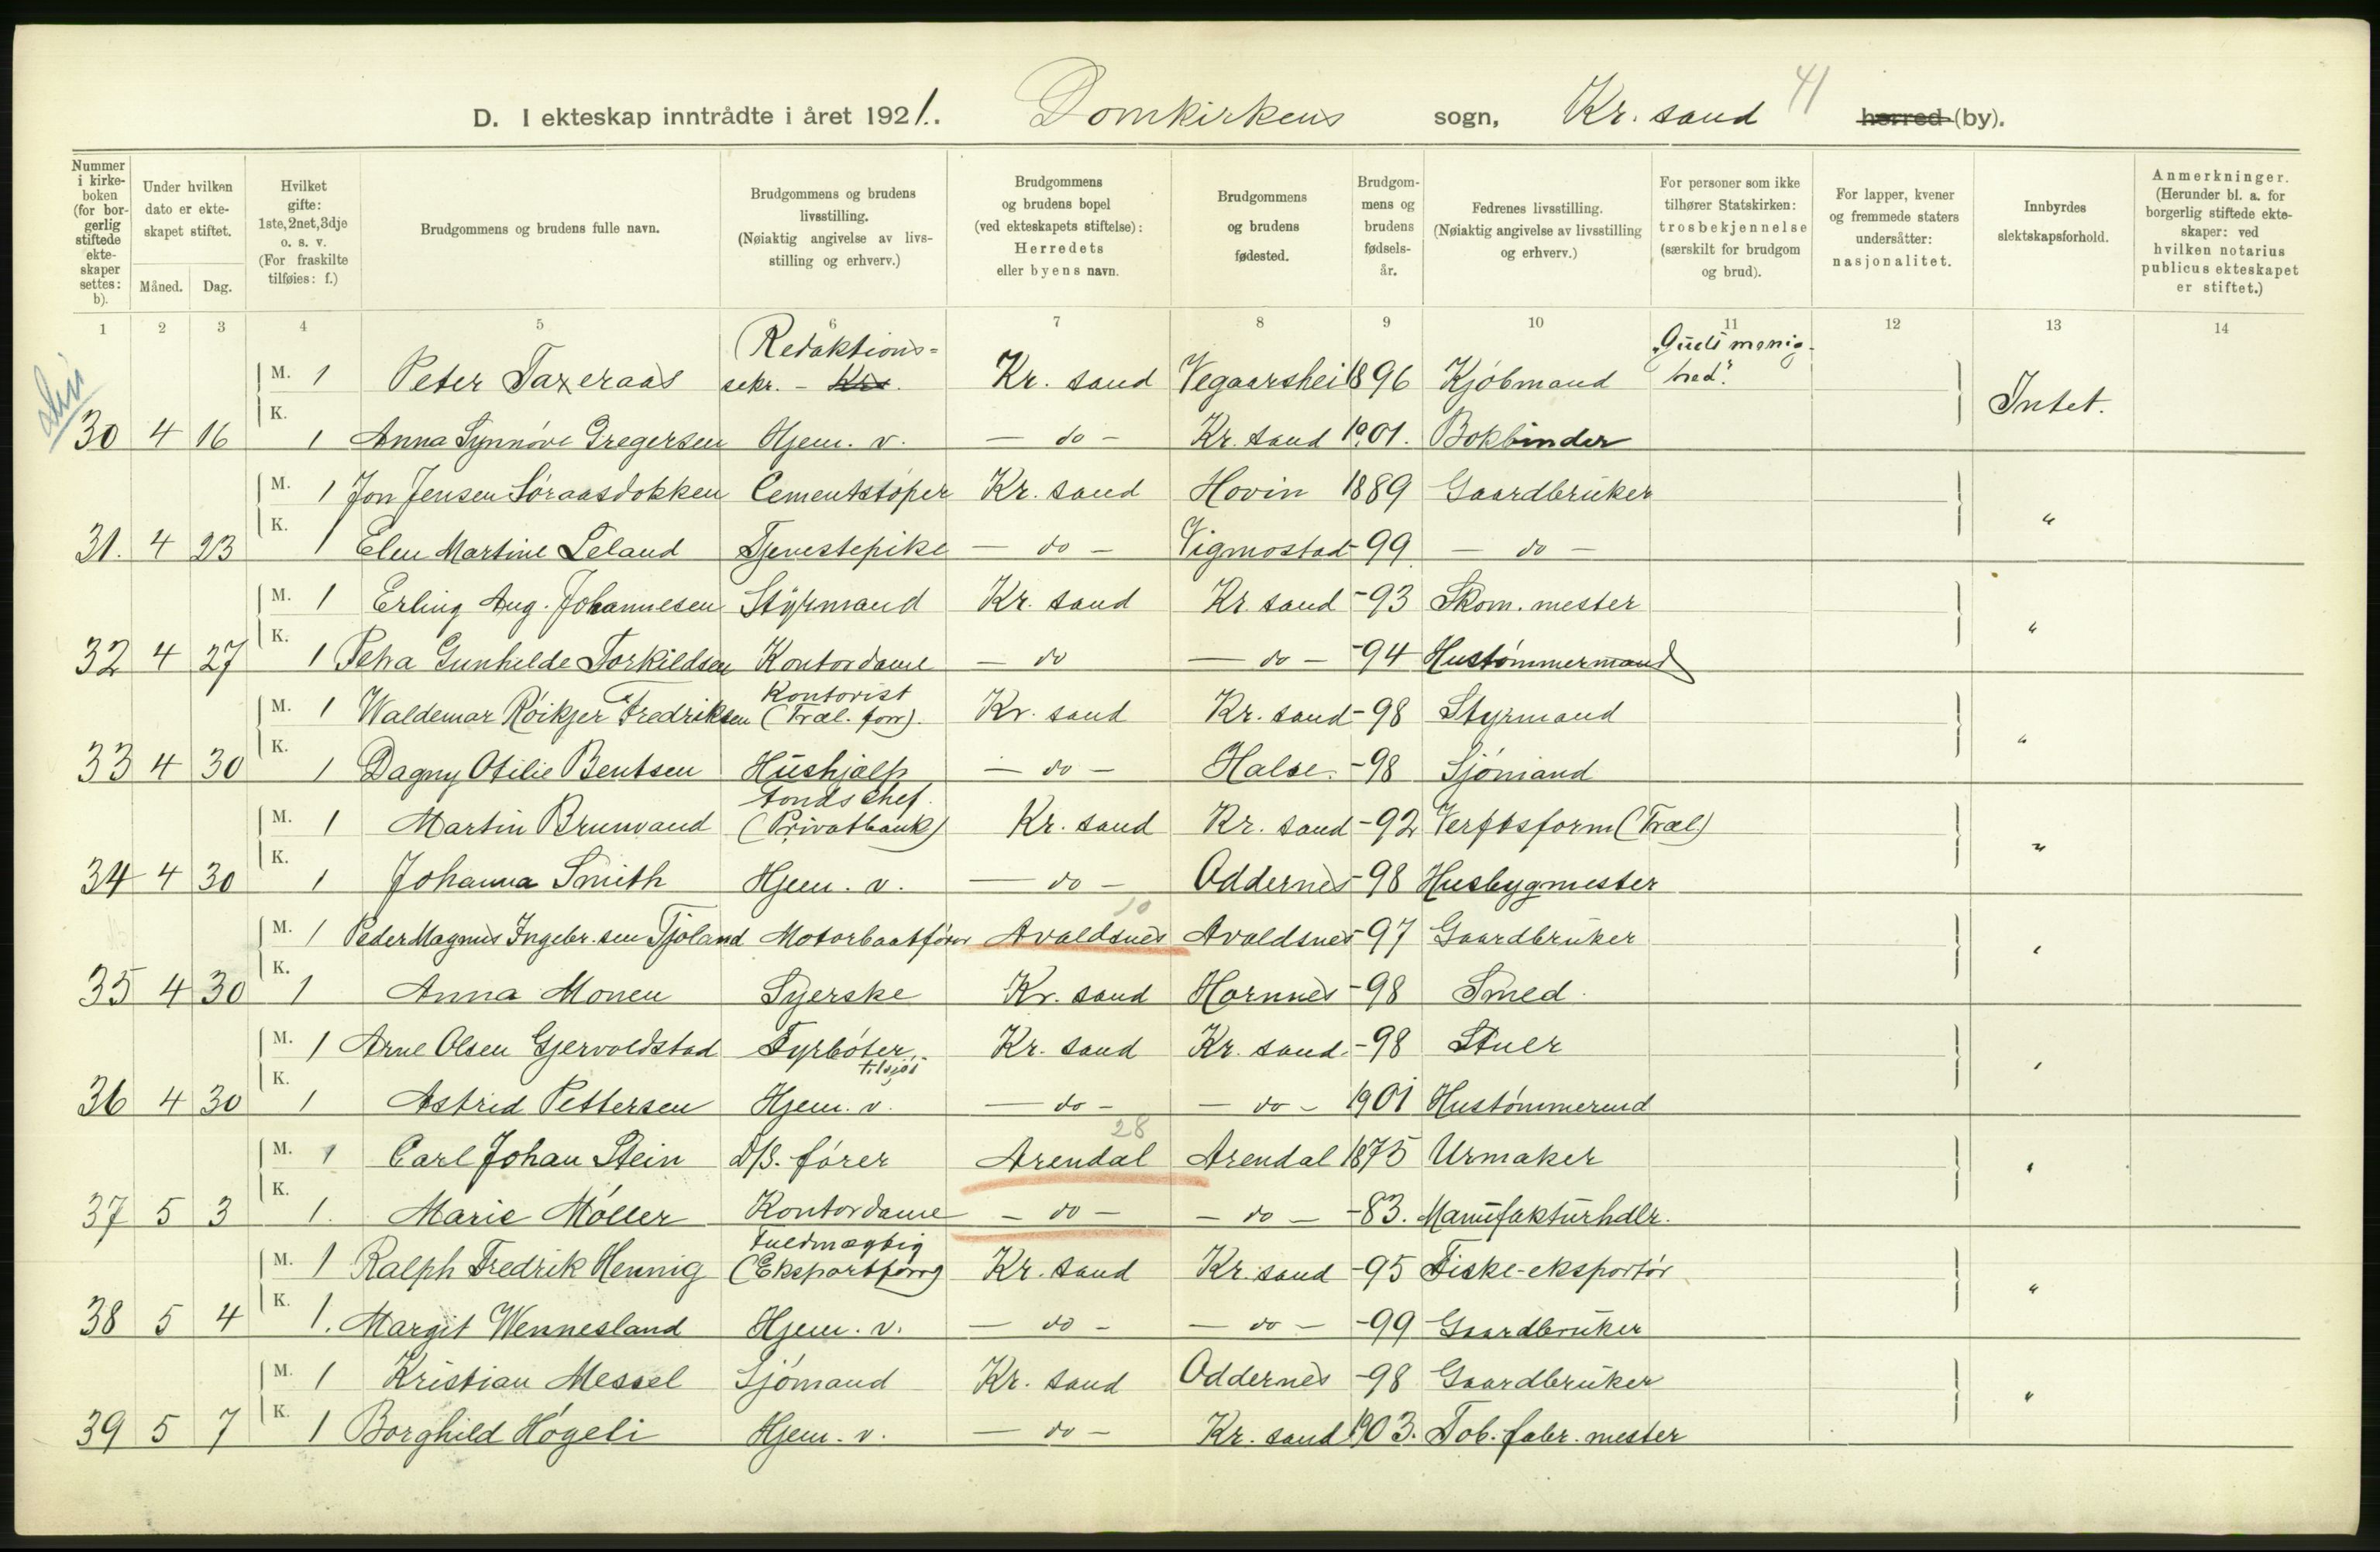 D. I ekteskap inntrådte i året 1921. Domkirkens sogn, Kr. sand 41 herred (by).
Nummer i kirkeboken (for borgerlig stiftede ekteskaper settes: b).
Under hvilken dato er ekteskapet stiftet.
Måned. Dag.
Hvilket gifte: 1ste, 2net, 3dje o. s. v. (For fraskilte tilføies: f.)
Brudgommens og brudens fulle navn.
Brudgommens og brudens livsstilling. (Nøiaktig angivelse av livsstilling og erhverv.)
Brudgommens og brudens bopel (ved ekteskapets stiftelse): Herredets eller byens navn.
Brudgommens og brudens fødested.
Brudgommens og brudens fødselsår.
Fedrenes livsstilling. (Nøiaktig angivelse av livsstilling og erhverv.)
For personer som ikke tilhører Statskirken: trosbekjennelse (særskilt for brudgom og brud).
For lapper, kvener og fremmede staters undersåtter: nasjonalitet.
Innbyrdes slektskapsforhold.
Anmerkninger. (Herunder bl. a. for borgerlig stiftede ekteskaper: ved hvilken notarius publicus ekteskapet er stiftet.)
1 2 3 4 5 6 7 8 9 10 11 12 13 14
M. 1 Peter Taxeraas Redaktions= sekr. - Krs. Kr. sand Vegaarshei 1896 Kjöbmand "Guds menighed". Intet.
30 4 16 K. 1 Anna Synnöve Gregersen Hjem. v. - do - Kr. sand 1901. Bokbinder
M. 1 Jon Jensen Söraasdokken Cementstöper Kr. sand Hovin 1889 Gaardbruker "
31. 4 23 K. 1 Elen Martine Leland Tjenestepike - do - Vigmostad -99 - do -
M. 1 Erling Aug. Johannesen Styrmand Kr. sand Kr. sand -93 Skom. mester "
32 4 27 K. 1 Petra Gunhilde Torkildsen Kontordame - do - do - -94 Hustömmermand
M. 1 Waldemar Röikjer Fredriksen Kontorist (Træl. forr). Kr. sand Kr. sand -98 Styrmand "
33 4 30 K. 1 Dagny Otilie Bentsen Hushjælp - do - Halse. -98 Sjömand
M. 1 Martin Brunvand Fondschef. (Privatbank) Kr. sand Kr. sand -92 Verftsform (Træl) "
34 4 30 K. 1 Johanna Smith Hjem. v. - do - Oddernes -98 Husbygmester
10
M. 1 Peder Magnus Ingebr.sen Tjöland Motorbaatförer Avaldsnes Avaldsnes -97 Gaardbruker "
35 4 30 K. 1 Anna Monen Syerske Kr. sand Hornnes -98 Smed.
M. 1 Arne Olsen Gjervoldstad Fyrböter. tilsjös Kr. sand Kr. sand. -98 Stuer "
36 4 30 K. 1 Astrid Pettersen Hjem. v. - do - - do - 1901 Hustömmermd
28
M. 1 Carl Johan Stein D/S. förer Arendal Arendal 1875 Urmaker "
37 5 3 K. 1. Marie Möller Kontordame - do - - do - -83. Manufakturhdlr.
M. 1 Ralph Fredrik Hennig Fuldmægtig (Eksportforr) Kr. sand Kr. sand -95 Fiske-eksportör "
38 5 4 K. 1. Margit Wennesland Hjem. v. - do - - do - -99 Gaardbruker
M. 1 Kristian Messel Sjömand Kr. sand Oddernes -98 Gaardbruker "
39 5 7 K. 1 Borghild Högeli Hjem. v. - do - Kr. sand 1903. Tob. fabr. mester